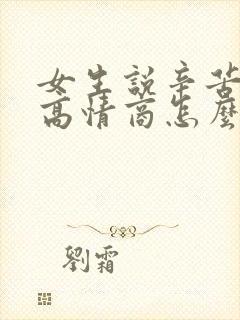 女生說辛苦
高情商怎麼
劉霜